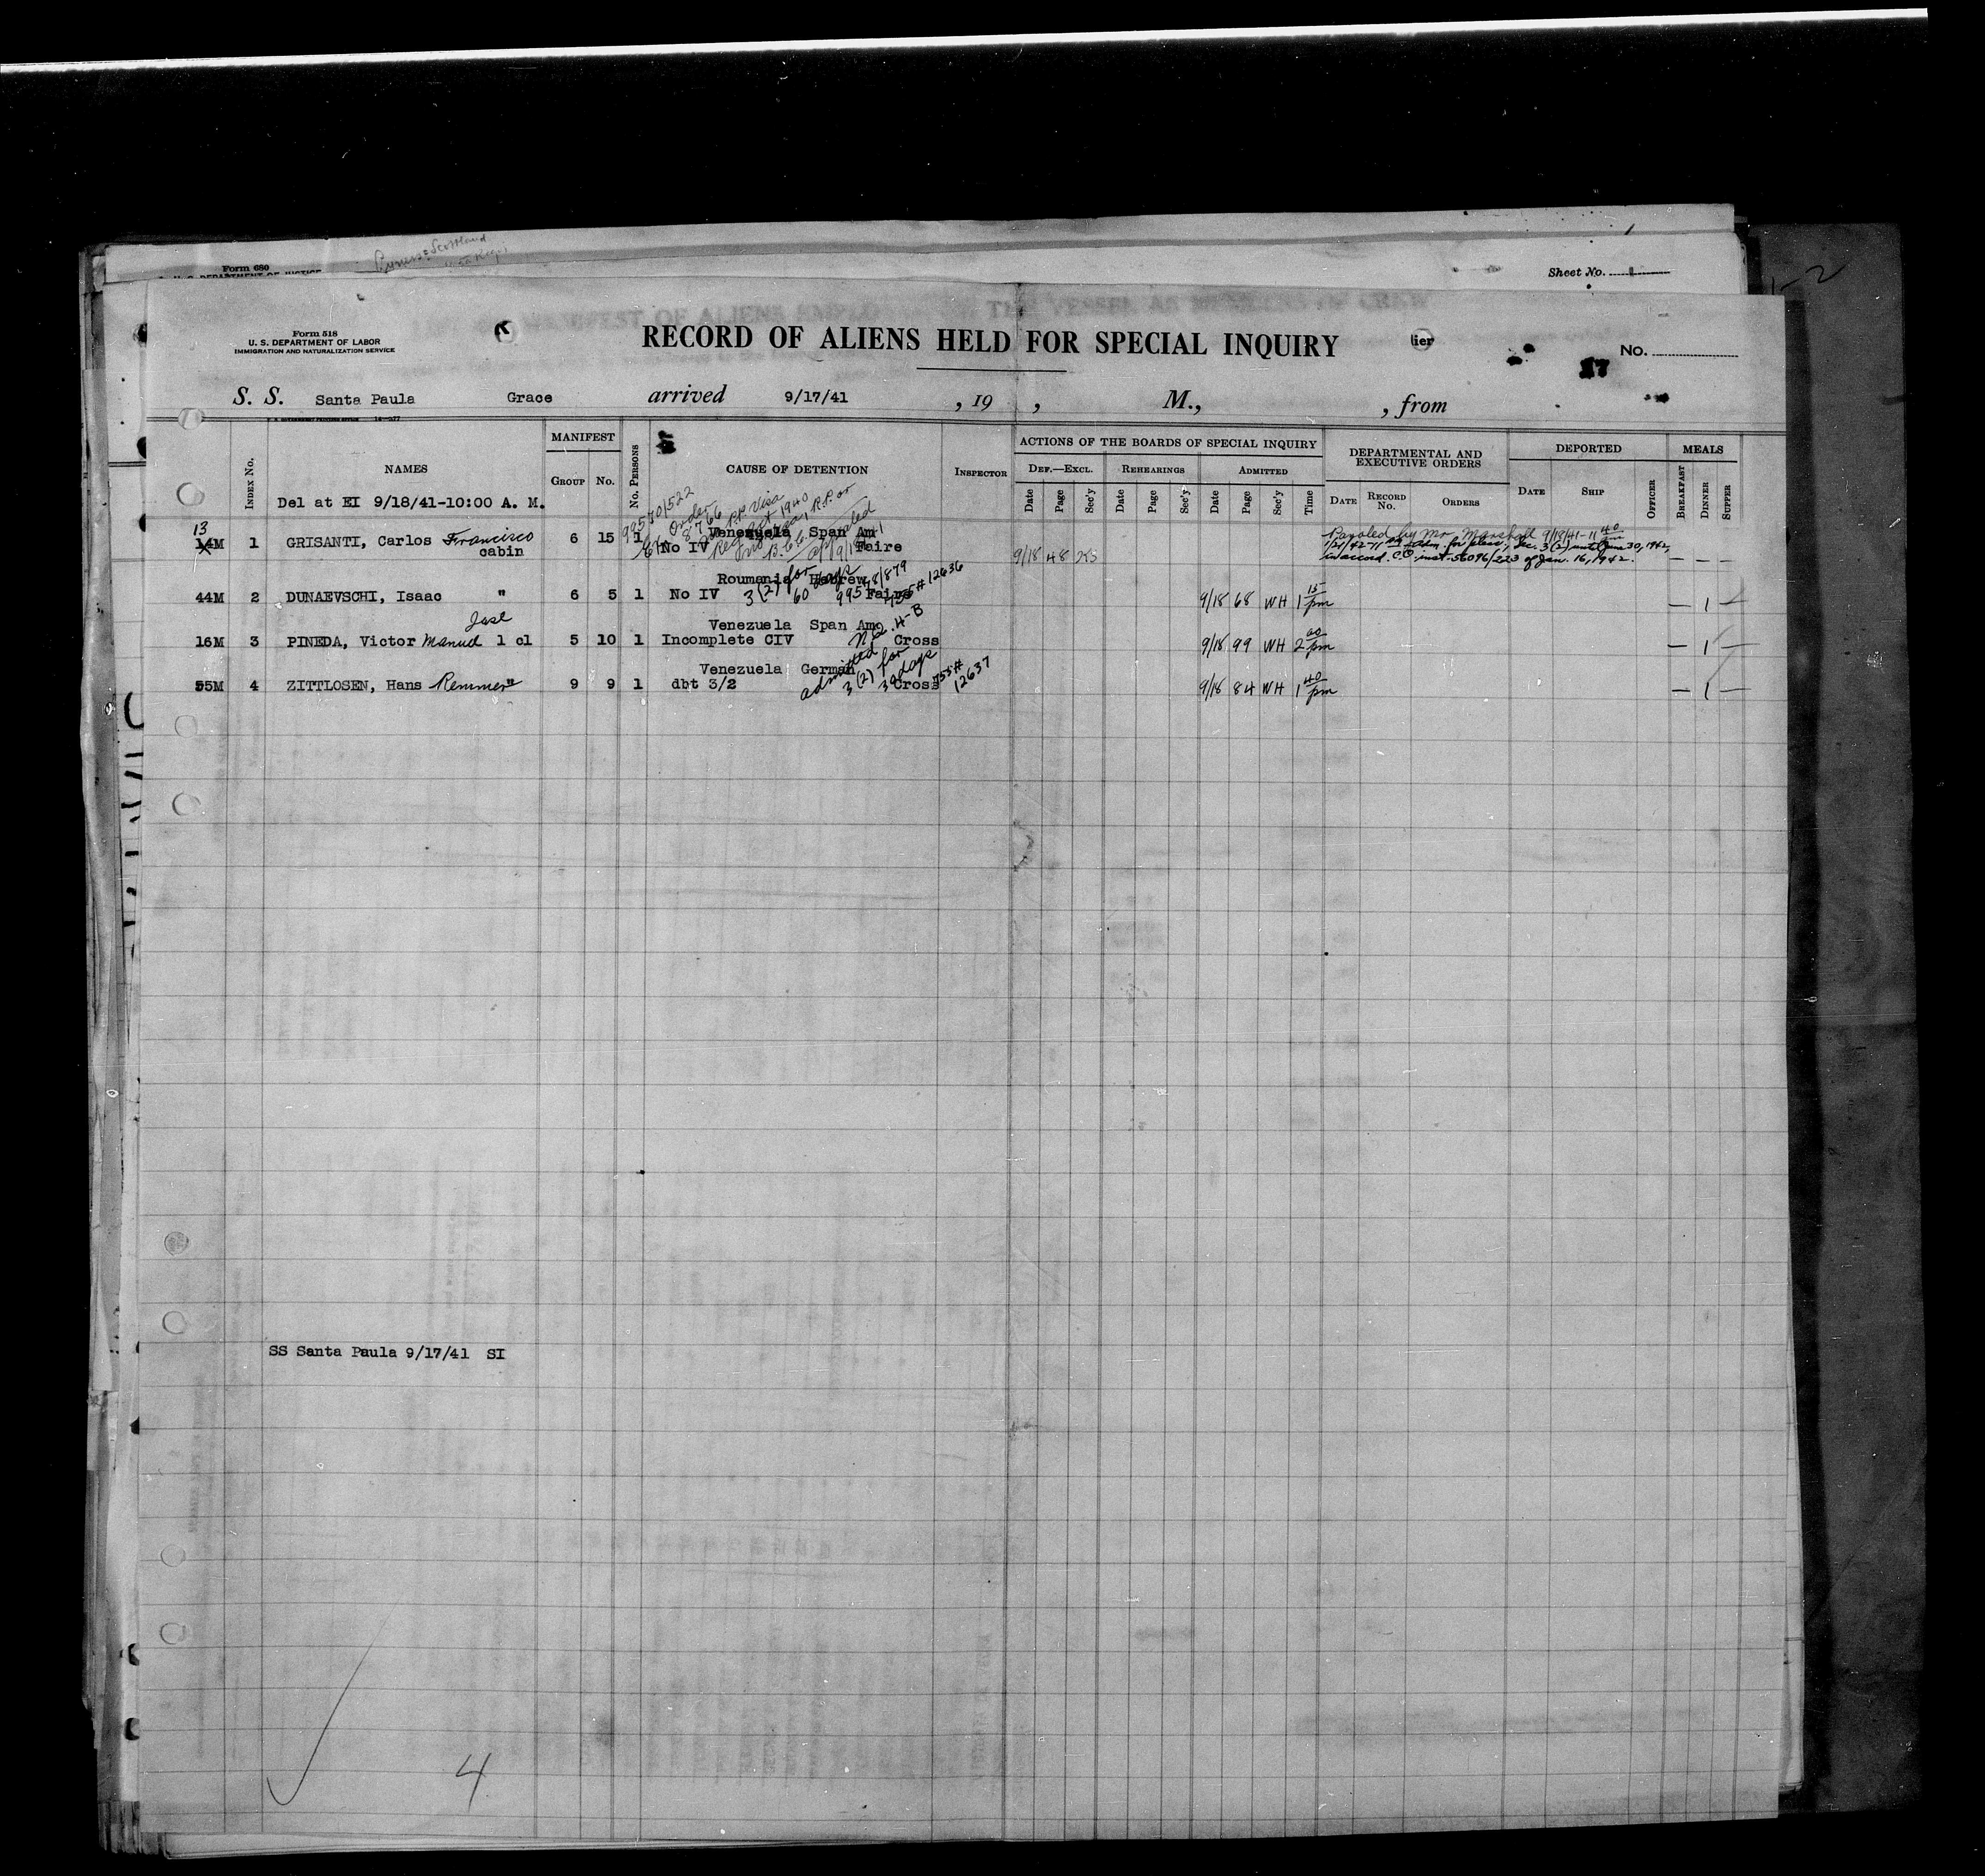 Form 680
U. S. DEPARTMENT OF JUSTICE
Scotland
Sheet No.
Form 518
U. S. DEPARTMENT OF LABOR
IMMIGRATION AND NATURALIZATION SERVICE
RECORD OF ALIENS HELD FOR SPECIAL INQUIRY
lier
No.
17
S. S. Santa Paula Grace arrived 9/17/41 , 19 , M., , from
MANIFEST
ACTIONS OF THE BOARDS OF SPECIAL INQUIRY
DEPARTMENTAL AND EXECUTIVE ORDERS
DEPORTED
MEALS
INDEX NO. NAMES GROUP NO. NO. PERSONS CAUSE OF DETENTION INSPECTOR
DEF.—EXCL. REHEARINGS ADMITTED
Date Page Sec'y Date Page Sec'y Date Page Sec'y Time
DATE RECORD NO. ORDERS DATE SHIP OFFICER BREAKFAST DINNER SUPPER
Del at EI 9/18/41-10:00 A. M.
99570/522
Ex. Order
8766
P.P. Visa
1940
P.P. or
13
14M 1 GRISANTI, Carlos Francisco 6 15 1 Venezuela Span Am
cabin No IV Faire
9/18 48
Paroled by Mr. Marshall 9/18/41-11 40
1/21/42-11 Adm. for pleas, Sec. 3(2) until June 30, 1942,
in accord. C.O. inst. 56096/223 of Jan. 16, 1942.
— — —
Roumania Hebrew
44M 2 DUNAEVSCHI, Isaac " 6 5 1 No IV Faire
3(2) for
60 days
#12636
9/18 68 WH 1 15 pm — 1 —
José
Venezuela Span Am
16M 3 PINEDA, Victor Manuel 1 cl 5 10 1 Incomplete CIV Cross
9/18 99 WH 2 00 pm — 1 —
Venezuela German
55M 4 ZITTLOSEN, Hans Remmer " 9 9 1 dbt 3/2 Cross
admitted
3(2) for
days
755#
12637
9/18 84 WH 1 40 pm — 1 —
SS Santa Paula 9/17/41 SI
4